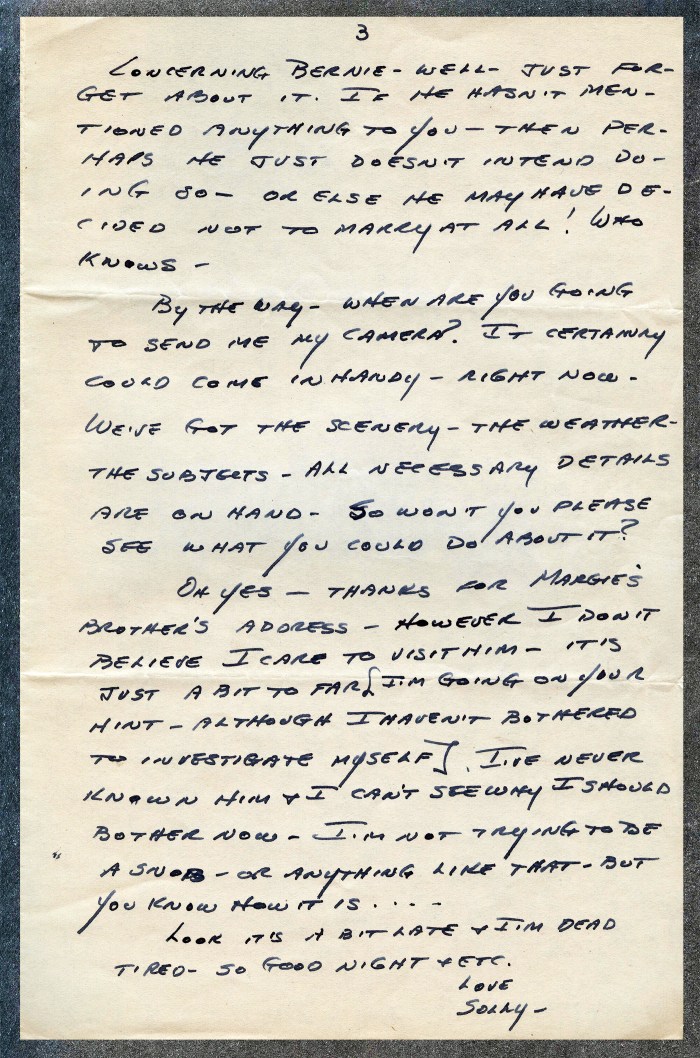 3
CONCERNING BERNIE - WELL - JUST FOR-
GET ABOUT IT. IF HE HASN'T MEN-
TIONED ANYTHING TO YOU - THEN PER-
HAPS HE JUST DOESN'T INTEND DO-
ING SO - OR ELSE HE MAY HAVE DE-
CIDED NOT TO MARRY AT ALL! WHO
KNOWS -
BY THE WAY - WHEN ARE YOU GOING
TO SEND ME MY CAMERA? IT CERTAINLY
COULD COME IN HANDY - RIGHT NOW -
WE'VE GOT THE SCENERY - THE WEATHER -
THE SUBJECTS - ALL NECESSARY DETAILS
ARE ON HAND - SO WON'T YOU PLEASE
SEE WHAT YOU COULD DO ABOUT IT?
OH YES - THANKS FOR MARGIE'S
BROTHER'S ADDRESS - HOWEVER I DON'T
BELIEVE I CARE TO VISIT HIM - IT IS
JUST A BIT TO FAR [I'M GOING ON YOUR
HINT - ALTHOUGH I HAVEN'T BOTHERED
TO INVESTIGATE MYSELF]. I'VE NEVER
KNOWN HIM & I CAN'T SEE WHY I SHOULD
BOTHER NOW - I'M NOT TRYING TO BE
A SNOB - OR ANYTHING LIKE THAT - BUT
YOU KNOW HOW IT IS . . . -
LOOK IT'S A BIT LATE & I'M DEAD
TIRED - SO GOOD NIGHT & ETC.
LOVE
SOLLY -